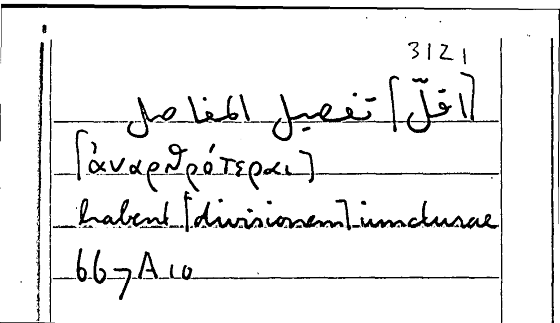 3121
[اقلّ] تفصيل المفاصل
[ἀναρθρότεραι]
habent [divisionem] iuncturae
667 A 10